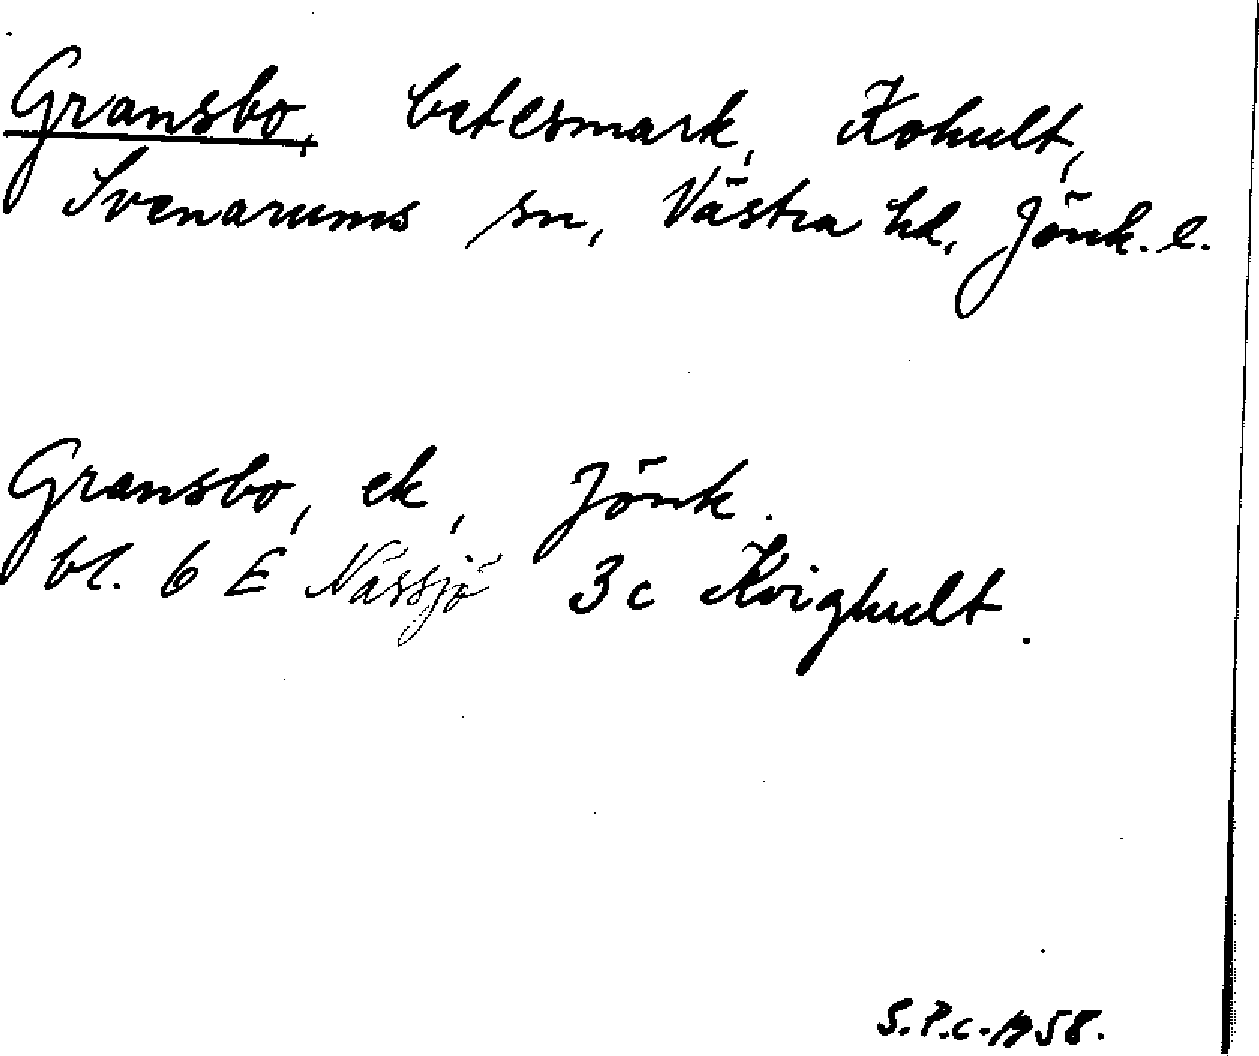 Gransbo, betesmark, Kohult,
Svenarums sn, Västra hd, Jönk. l.
Gransbo, ek, Jönk.
bl. 6 E Nässjö 3c Kvighult.
S.P.C. 1958.